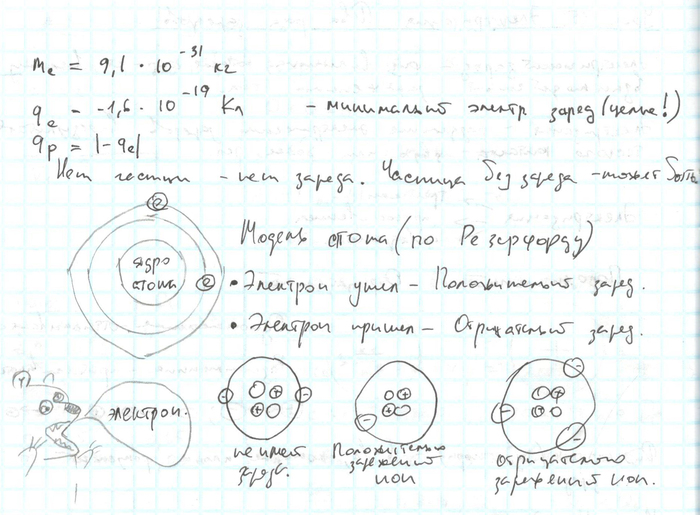 me = 9,1 · 10⁻³¹ кг
qe = -1,6 · 10⁻¹⁹ Кл - минимальный электр заряд (целые!)
qp = |-qe|
Нет частицы - нет заряда. Частица без заряда - может быть
Модель атома (по Резерфорду)
ядро
атома
e
e
• Электрон ушел - Положительный заряд.
• Электрон пришел - Отрицательный заряд.
электрон.
- + + -
- + +
- - + + -
не имеет
заряда.
Положительно
заряженный
ион
отрицательно
заряженный ион.